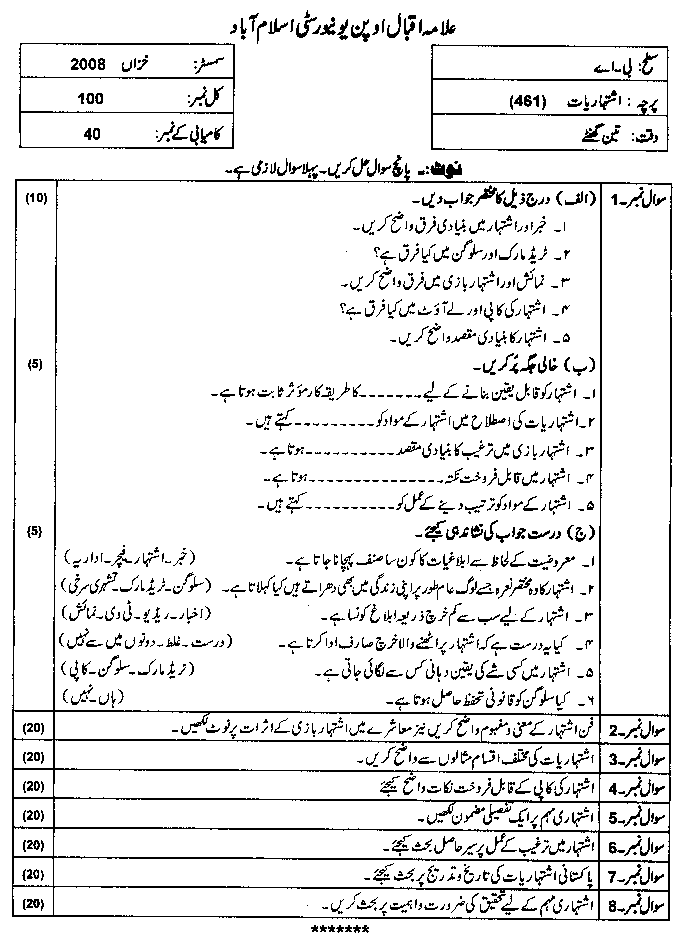 علامہ اقبال اوپن یونیورسٹی اسلام آباد
سطح: بی۔اے
سمسٹر: خزاں 2008
پرچہ: اشتہاریات (461)
کل نمبر: 100
وقت: تین گھنٹے
کامیابی کے نمبر: 40
نوٹ:۔ پانچ سوال حل کریں۔ پہلا سوال لازمی ہے۔
سوال نمبر۔1 (الف) درج ذیل کا مختصر جواب دیں۔ (10)
۱۔ خبر اور اشتہار میں بنیادی فرق واضح کریں۔
۲۔ ٹریڈ مارک اور سلوگن میں کیا فرق ہے؟
۳۔ نمائش اور اشتہار بازی میں فرق واضح کریں۔
۴۔ اشتہار کی کاپی اور لے آؤٹ میں کیا فرق ہے؟
۵۔ اشتہار کا بنیادی مقصد واضح کریں۔
(ب) خالی جگہ پُر کریں۔ (5)
۱۔ اشتہار کو قابل یقین بنانے کے لیے ۔۔۔۔۔۔۔ کا طریقہ کار مؤثر ثابت ہوتا ہے۔
۲۔ اشتہاریات کی اصطلاح میں اشتہار کے مواد کو ۔۔۔۔۔۔۔۔۔ کہتے ہیں۔
۳۔ اشتہار بازی میں ترغیب کا بنیادی مقصد ۔۔۔۔۔۔۔۔۔۔ ہوتا ہے۔
۴۔ اشتہار میں قابل فروخت نکتہ ۔۔۔۔۔۔۔۔۔۔ ہوتا ہے۔
۵۔ اشتہار کے مواد کو ترتیب دینے کے عمل کو ۔۔۔۔۔۔۔۔۔۔ کہتے ہیں۔
(ج) درست جواب کی نشاندہی کیجئے۔ (5)
۱۔ معروضیت کے لحاظ سے ابلاغیات کا کون سا صنف پہچانا جاتا ہے۔ (خبر۔ اشتہار۔ فیچر۔ اداریہ)
۲۔ اشتہار کا وہ مختصر نعرہ جسے لوگ عام طور پر اپنی زندگی میں بھی دھراتے ہیں کیا کہلاتا ہے۔ (سلوگن۔ ٹریڈ مارک۔ تشہیری سرخی)
۳۔ اشتہار کے لیے سب سے کم خرچ ذریعہ ابلاغ کونسا ہے۔ (اخبار۔ ریڈیو۔ ٹی وی۔ نمائش)
۴۔ کیا یہ درست ہے کہ اشتہار پر اٹھنے والا خرچ صارف ادا کرتا ہے۔ (درست۔ غلط۔ دونوں میں سے نہیں)
۵۔ اشتہار میں کسی شے کی یقین دہانی کس سے لگائی جاتی ہے۔ (ٹریڈ مارک۔ سلوگن۔ کاپی)
۶۔ کیا سلوگن کو قانونی تحفظ حاصل ہوتا ہے۔ (ہاں۔ نہیں)
سوال نمبر۔2 فن اشتہار کے معنی و مفہوم واضح کریں نیز معاشرے میں اشتہار بازی کے اثرات پر نوٹ لکھیں۔ (20)
سوال نمبر۔3 اشتہاریات کی مختلف اقسام مثالوں سے واضح کریں۔ (20)
سوال نمبر۔4 اشتہار کی کاپی کے قابل فروخت نکات واضح کیجئے (20)
سوال نمبر۔5 اشتہاری مہم پر ایک تفصیلی مضمون لکھیں۔ (20)
سوال نمبر۔6 اشتہار میں ترغیب کے عمل پر سیر حاصل بحث کیجئے۔ (20)
سوال نمبر۔7 پاکستانی اشتہاریات کی تاریخ و تدریج پر بحث کیجئے۔ (20)
سوال نمبر۔8 اشتہاری مہم کے لیے تحقیق کی ضرورت و اہمیت پر بحث کریں۔ (20)
*******